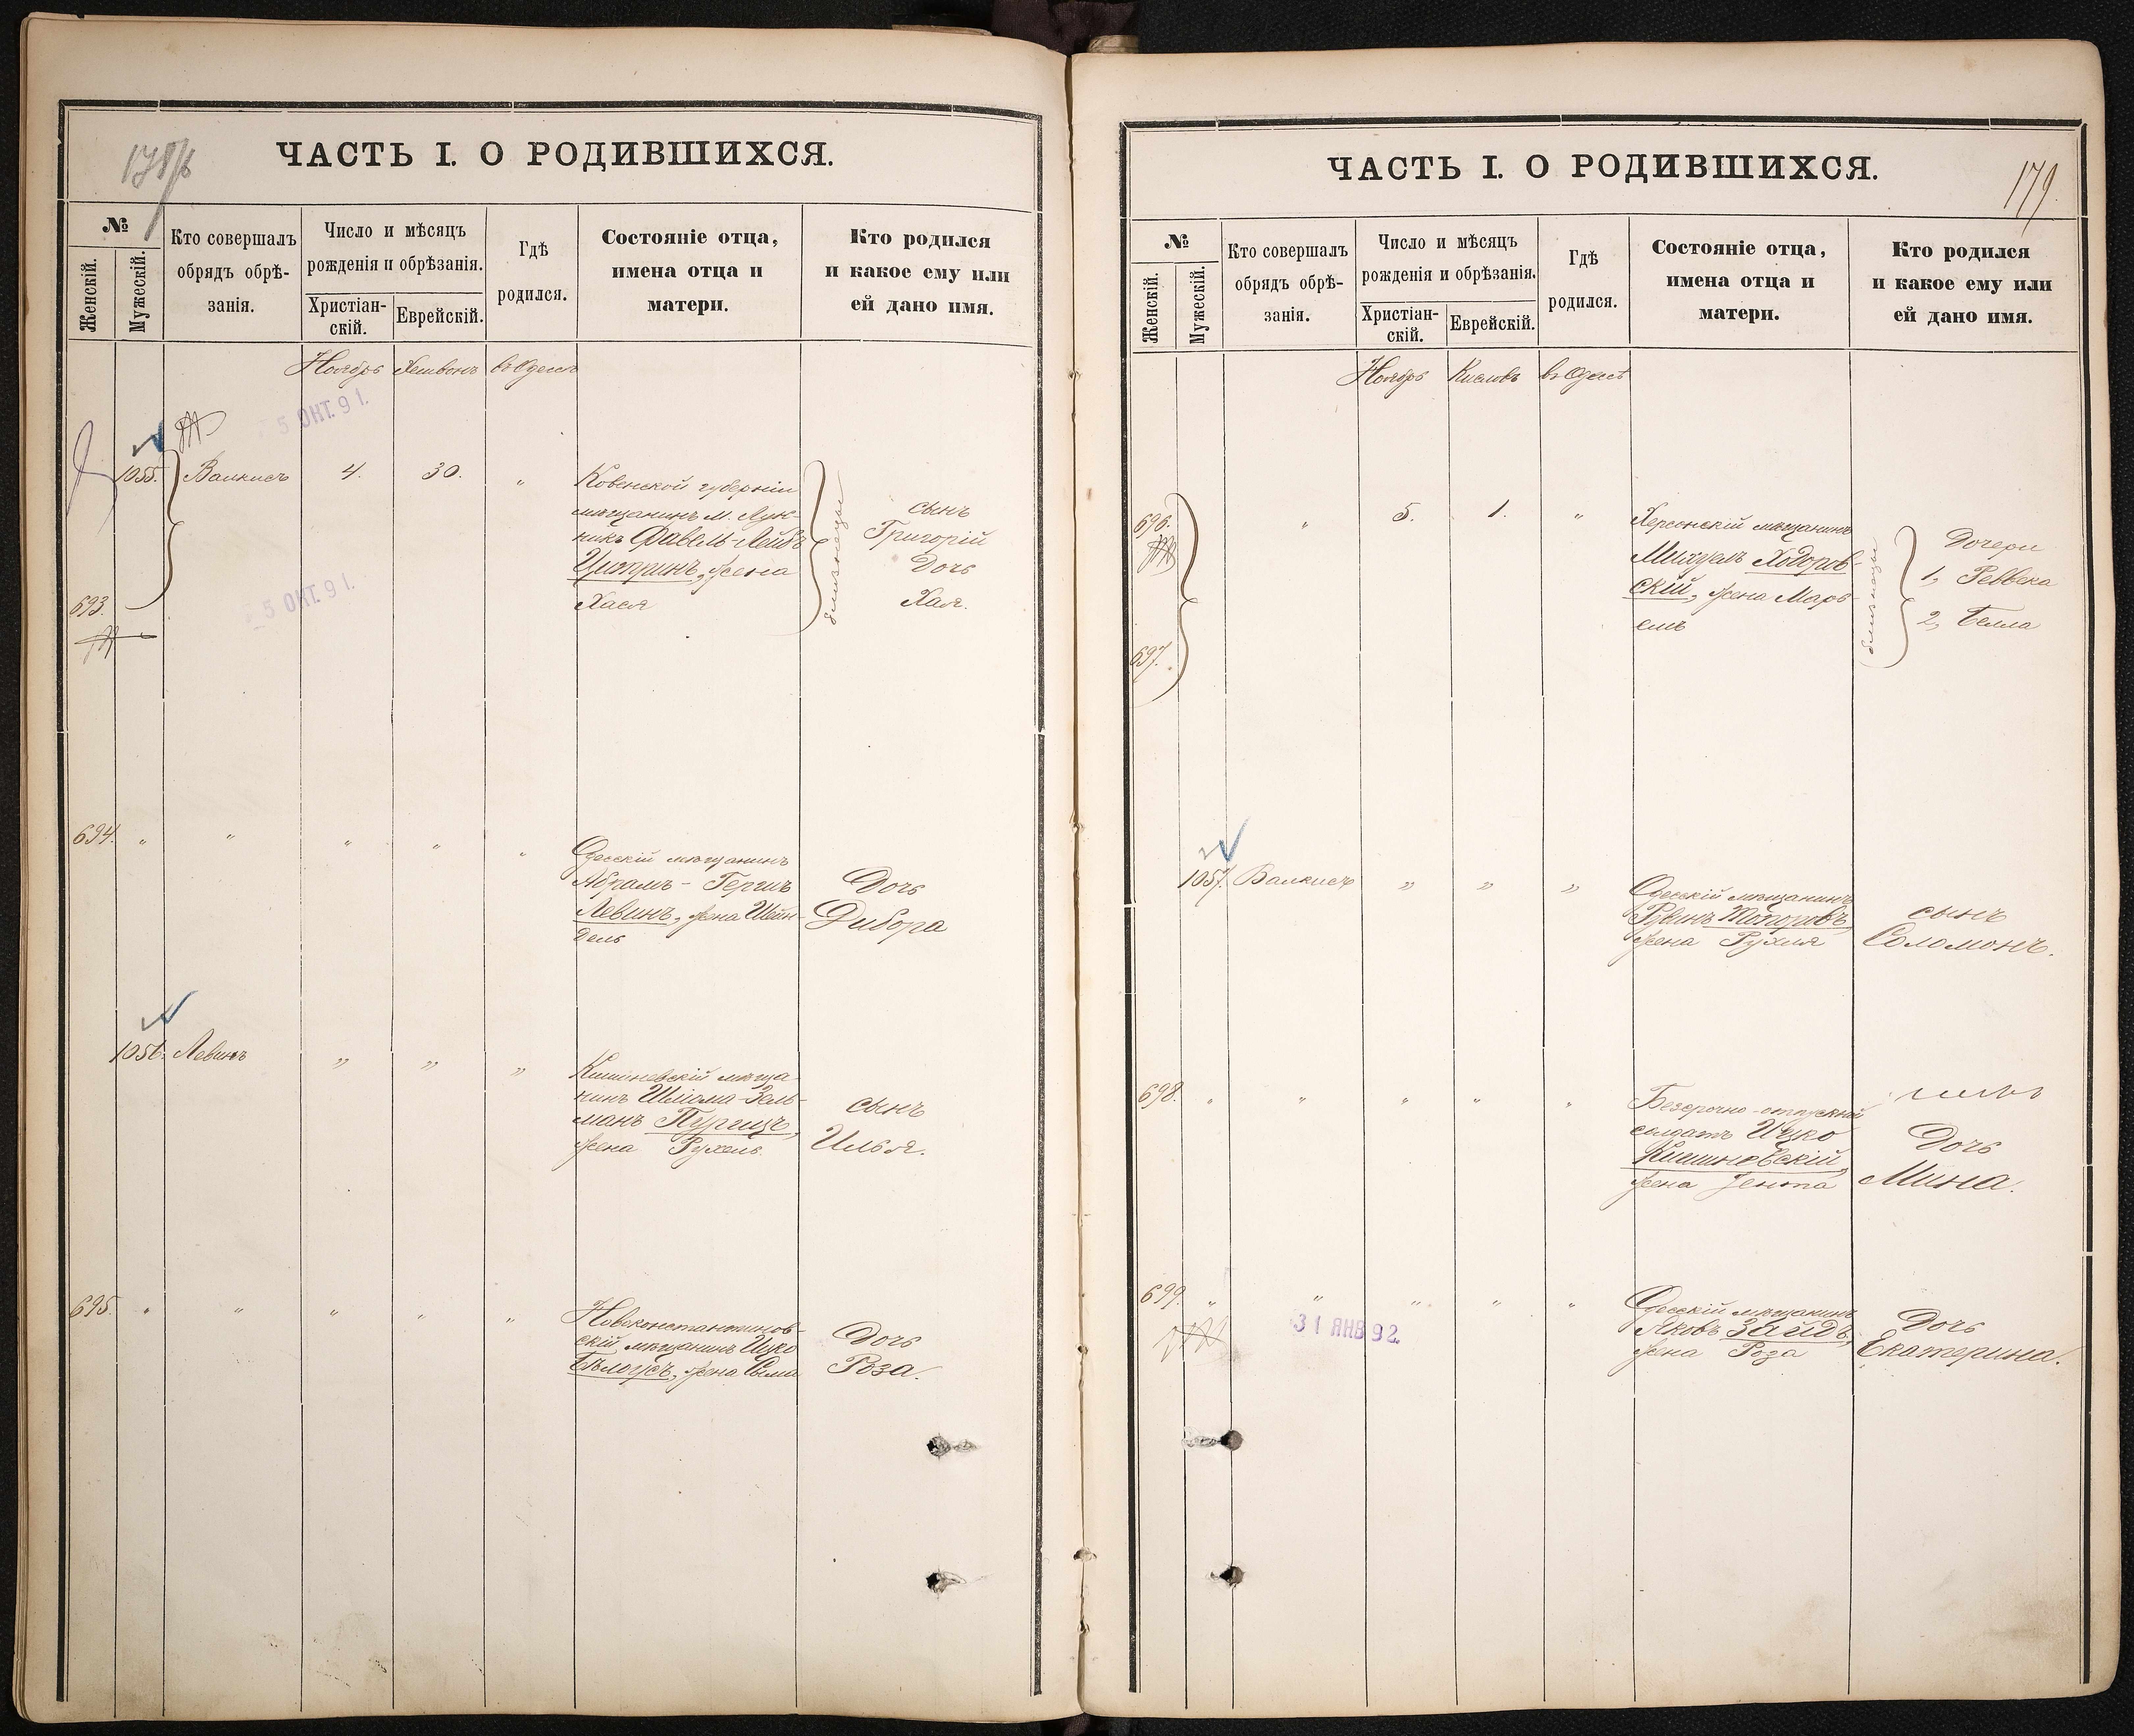 ЧАСТЬ I. О РОДИВШИХСЯ.
№
Женскій.
Мужескій.
Кто совершалъ
обрядъ обрѣ-
занія.
Число и мѣсяцъ
рожденія и обрѣзанія.
Христіан-
скій.
Еврейскій.
Гдѣ
родился.
Состояніе отца,
имена отца и
матери.
Кто родился
и какое ему или
ей дано имя.
Ноябрь Хешвонъ въ Одессѣ
5 ОКТ. 91.
1055. Валкисъ 4. 30. "
Ковенской губерніи
мѣщанинъ м. Лук-
никъ Фавель-Лейбъ
Цитринъ, жена
Хася
близнецы
сынъ
Григорій
Дочь
Хая.
5 ОКТ. 91.
693.
694. " " " " "
Одесскій мѣщанинъ
Абрамъ-Гершъ
Левинъ, жена Шейн-
дель
Дочь
Дибора
1056. Левинъ " " "
Кишиневскій мѣща-
нинъ Шліома-Зель-
манъ Пургицъ,
жена Рухель.
сынъ
Илья.
695. " " " " "
Новоконстантинов-
скій мѣщанинъ Ицко
Бѣлоусъ, жена Сима
Дочь
Роза.
ЧАСТЬ I. О РОДИВШИХСЯ.
179.
№
Женскій.
Мужескій.
Кто совершалъ
обрядъ обрѣ-
занія.
Число и мѣсяцъ
рожденія и обрѣзанія.
Христіан-
скій.
Еврейскій.
Гдѣ
родился.
Состояніе отца,
имена отца и
матери.
Кто родился
и какое ему или
ей дано имя.
Ноябрь Кислевъ въ Одессѣ
696. " 5. 1. "
697.
Херсонскій мѣщанинъ
Михуель Ходоров-
скій, жена Марь-
емъ
близнецы
Дочери
1, Реввека
2, Белла
1057. Валкисъ " " "
Одесскій мѣщанинъ
Рувинъ Топоровъ,
жена Рухля
сынъ
Соломонъ.
698. " " " " "
Безсрочно-отпускной
солдатъ Ицко
Кишиневскій,
жена Гента
Дочь
Мина.
699. " " " " "
31 ЯНВ 92.
Одесскій мѣщанинъ
Яковъ Зайдъ,
жена Роза
Дочь
Екатерина.